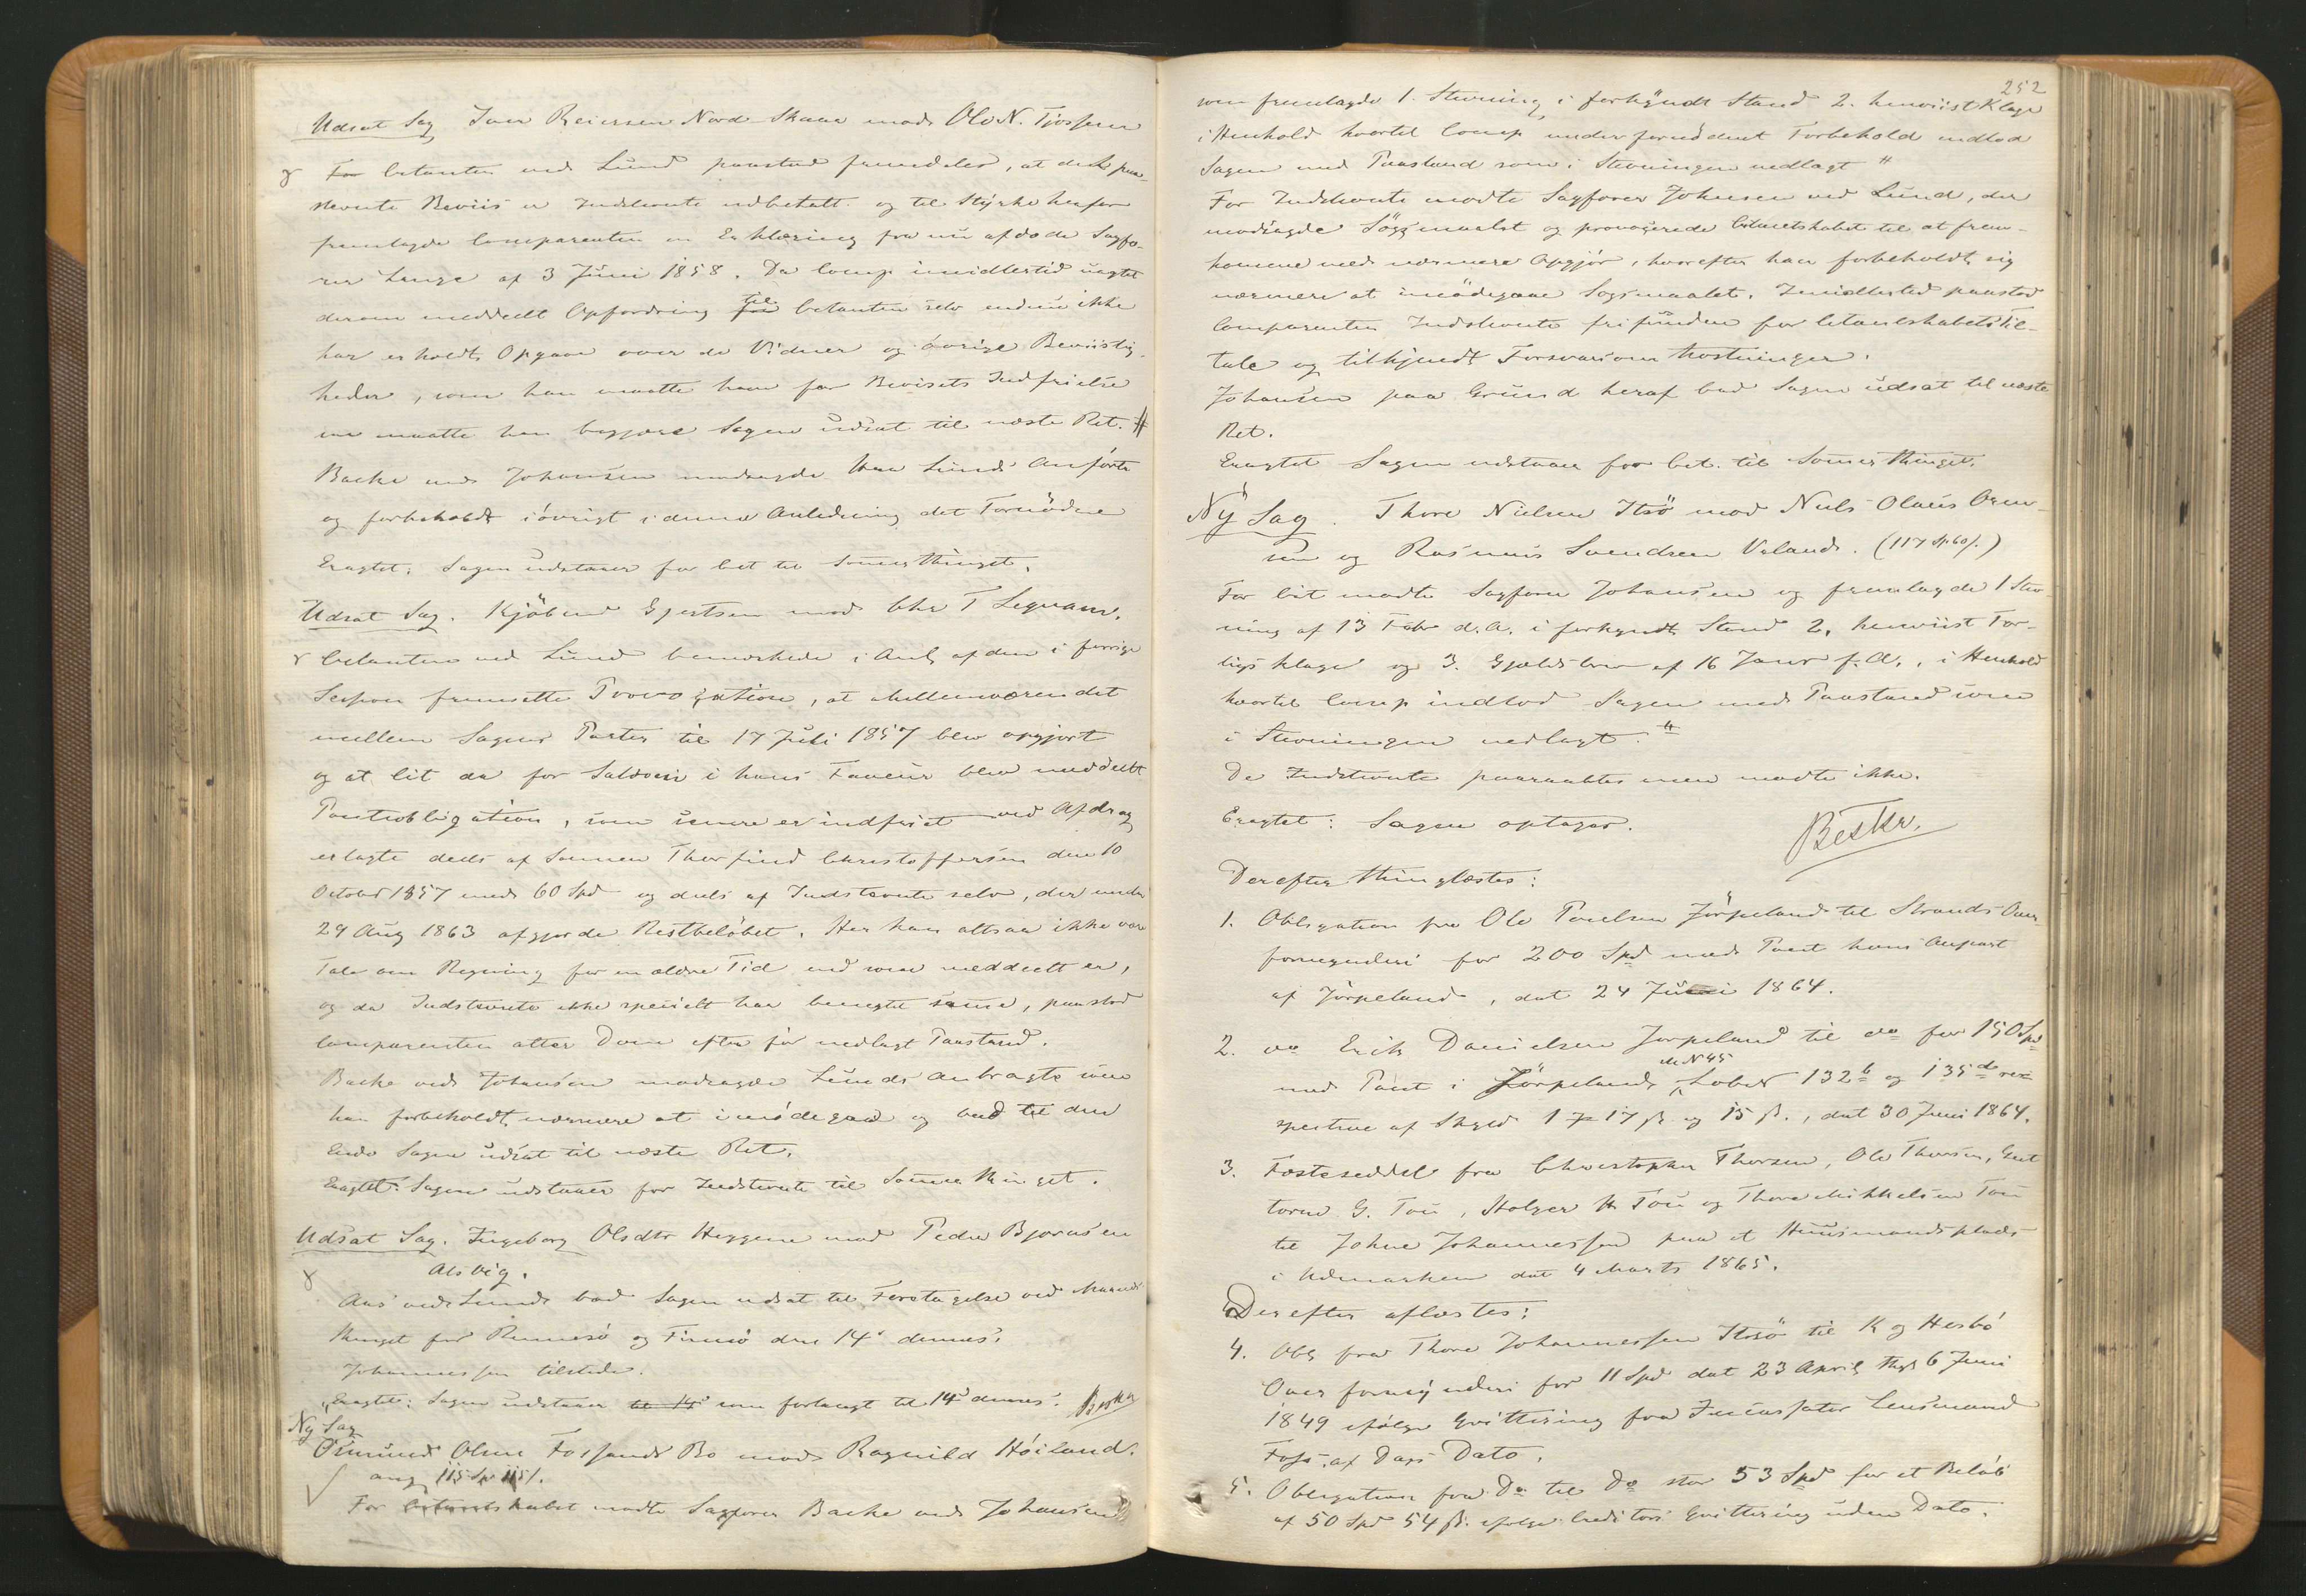 Udsat Sag Iver Reiersen Nord Skaar mod Ole N. Tjossem
For Citanten mød Lund paastod fremdeles, at det paa-
stevnte Beviis er Indstevnte udbetalt og til Styrke herfor
fremlagde Comparenten en Erklæring fra nu afdøde Sagfø-
rer Lange af 3 Juni 1858. Da Comp imidlertid uagtet
derom meddeelt Opfordring til Citanten selv endnu ikke
har erholdt Opgave over de Vidner og øvrige Beviislig-
heder, som han maatte have for Bevisets Indfrielse
maatte han begjære Sagen udsat til næste Ret. #
Backe ved Johansen modsagde Lunds Anførte
og forbeholdt iøvrigt i denne Anledning det Fornødne
Eragtet: Sagen udstaaer for Cit til Sommerthinget.
Udsat Sag. Kjøbmd Gjertsen mod Chr T Leqvam.
Citanten ved Lund bemærkede i Anl af den i forrige
Session fremsatte Provocation, at Mellemværendet
mellem Sagens Parter til 17 Juli 1857 blev opgjort
og at Cit da for Saldoen i hans Faveur blev meddeelt
Pantobligation, som senere er indfriet ved Afdrag
erlagte deels af Sønnen Thorfind Christoffersen den 10
October 1857 med 60 Spd og deels af Indstevnte selv, der under
29 Aug 1863 afgjorde Restbeløbet. Her kan altsaa ikke være
Tale om Regning for en ældre Tid end som meddeelt er,
og da Indstevnte ikke specielt har benegtet samme, paastod
Comparenten atter Dom efter før nedlagt Paastand.
Backe ved Johansen modsagde Lunds Anbragte som
han forbeholdt nærmere at imødegaae og bad til den
Ende Sagen udsat til næste Ret.
Eragtet: Sagen udstaaer for Indstevnte til Sommerthinget.
Udsat Sag. Ingeborg Olsdtr Heggem mod Peder Bjørnsen
Alsvig.
Aas ved Lund bad Sagen udsat til Foretagelse ved Mands
thinget for Rennesø og Finnø den 14de dennes.
Johannessen tilstede.
Eragtet: Sagen udstaaer til 14 som forlangt til 14de dennes. Beskr
Ny Sag
Osmund Olsen Fossand Bø mod Ragnild Høiland.
ang 115 Sp 115 f.
For Citantskabet mødte Sagfører Backe ved Johansen
252
som fremlagde 1. Stevning i forkyndt Stand 2. henviist Klage
i Henhold hvortil Comp under fornødent Forbehold indlod
Sagen med Paastand som i Stevningen nedlagt #
For Indstevnte mødte Sagfører Johnsen ved Lund, der
modsagde Søgsmaalet og provocerede Citantskabet til at frem-
komme med nærmere Opgjør, hvorefter han forbeholdt sig
nærmere at imødegaae Søgsmaalet. Imidlertid paastod
Comparenten Indstevnte frifunden for Citantskabets Til-
tale og tilkjendt Forsvarsomkostninger.
Johansen paa Grund heraf bad Sagen udsat til næste
Ret.
Eragtet Sagen udstaaer for Cit. til Sommerthinget.
Ny Sag. Thore Nielsen Itsø mod Niels Olaus Orm-
sen og Rasmus Svendsen Valand. (117 Sp 60 f.)
For Cit mødte Sagfører Johansen og fremlagde 1 Stev-
ning af 13 Febr d.A. i forkyndt Stand 2. henviist For-
ligsklage og 3. Gjældsbrev af 16 Janr f.A., i Henhold
hvortil Comp indlod Sagen med Paastand som
i Stevningen nedlagt. #
De Indstevnte paaraabtes men mødte ikke.
Eragtet: Sagen optages.
Beskr.
Derefter thinglæstes:
1. Obligation fra Ole Poulsen Jørpeland til Strands Over-
formynderi for 200 Spd med Pant hans Anpart
af Jørpeland, dat 24 Juni 1864.
2. do Erik Danielsen Jørpeland til do for 150 Spd
med Pant i Jørpeland M N 45 Løbe 132 b og 135 d res-
pective af Skyld 1 17 ß og 15 ß., dat 30 Juni 1864.
3. Fæsteseddel fra Christopher Thorsen, Ole Thorsen, Gut
torm G. Tou, Holger H Tou og Thore Mikkelsen Tou
til Johne Johannessen paa et Huusmandsplads
i Udmarken dat 4 Marts 1865.
Derefter aflæstes:
4. Obl fra Thore Johannessen Itsø til K og Hesbø
Overformynderi for 11 Spd dat 23 April thgl 6 Juni
1849 ifølge Qvittering fra Incassator Lensmand
Foss af Dags Dato.
5. Obligation fra Do til Do stor 53 Spd for et Beløb
af 50 Spd 54 ß. ifølge Creditors Qvittering uden Dato.